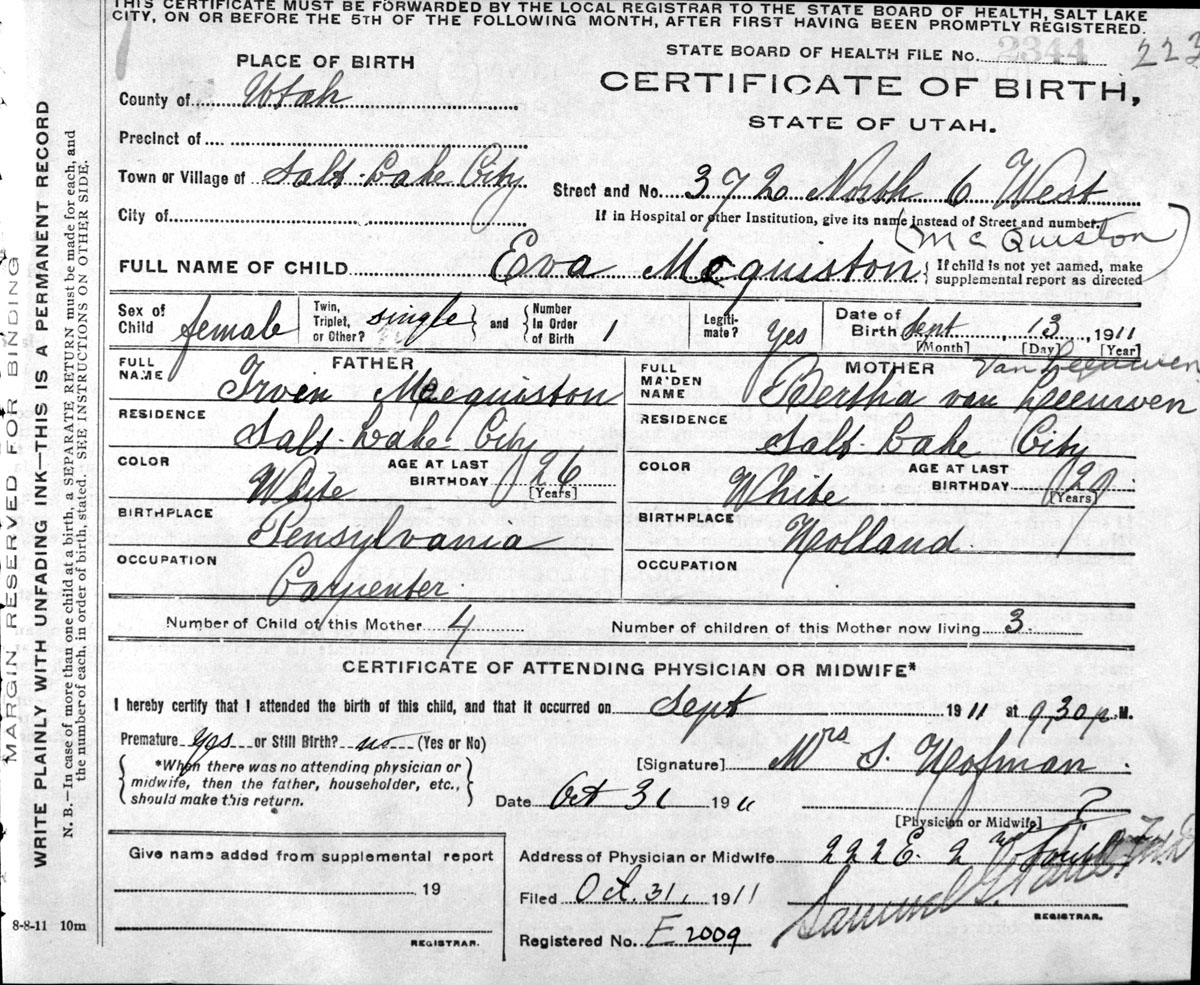 THIS CERTIFICATE MUST BE FORWARDED BY THE LOCAL REGISTRAR TO THE STATE BOARD OF HEALTH, SALT LAKE
CITY, ON OR BEFORE THE 5TH OF THE FOLLOWING MONTH, AFTER FIRST HAVING BEEN PROMPTLY REGISTERED.
STATE BOARD OF HEALTH FILE No. 2344 223
PLACE OF BIRTH
CERTIFICATE OF BIRTH,
STATE OF UTAH.
County of Utah
Precinct of
Town or Village of Salt Lake City
Street and No. 372 North 6 West
City of
If in Hospital or other Institution, give its name instead of Street and number.
(McQuiston)
FULL NAME OF CHILD Eva Mcquiston { If child is not yet named, make
supplemental report as directed
Sex of Child female
Twin, Triplet, or Other? single } and { Number In Order of Birth 1
Legiti-mate? Yes
Date of Birth Sept 13, 1911
[Month] [Day] [Year]
FATHER
FULL NAME Irven Mcquiston
RESIDENCE Salt-Lake City
COLOR White
AGE AT LAST BIRTHDAY 26
[Years]
BIRTHPLACE Pensylvania
OCCUPATION Carpenter.
MOTHER Van Leeuwen
FULL MAIDEN NAME Bertha van Leeuwen
RESIDENCE Salt-Lake City
COLOR White
AGE AT LAST BIRTHDAY 29
[Years]
BIRTHPLACE Holland.
OCCUPATION
Number of Child of this Mother 4
Number of children of this Mother now living 3.
CERTIFICATE OF ATTENDING PHYSICIAN OR MIDWIFE*
I hereby certify that I attended the birth of this child, and that it occurred on Sept 1911 at 9.30 p. M.
Premature yes or Still Birth? no (Yes or No)
{ *When there was no attending physician or
midwife, then the father, householder, etc.,
should make this return. }
[Signature] Mrs S. Hofman.
Date Oct 31 1911
?
[Physician or Midwife]
Give name added from supplemental report
19
REGISTRAR.
Address of Physician or Midwife 222 E. 2
Filed Oct. 31, 1911
Samuel G.
REGISTRAR.
Registered No. E 2009
8-8-11 10m
MARGIN RESERVED FOR BINDING
WRITE PLAINLY WITH UNFADING INK—THIS IS A PERMANENT RECORD
N. B.—In case of more than one child at a birth, a SEPARATE RETURN must be made for each, and
the number of each, in order of birth, stated. SEE INSTRUCTIONS ON OTHER SIDE.